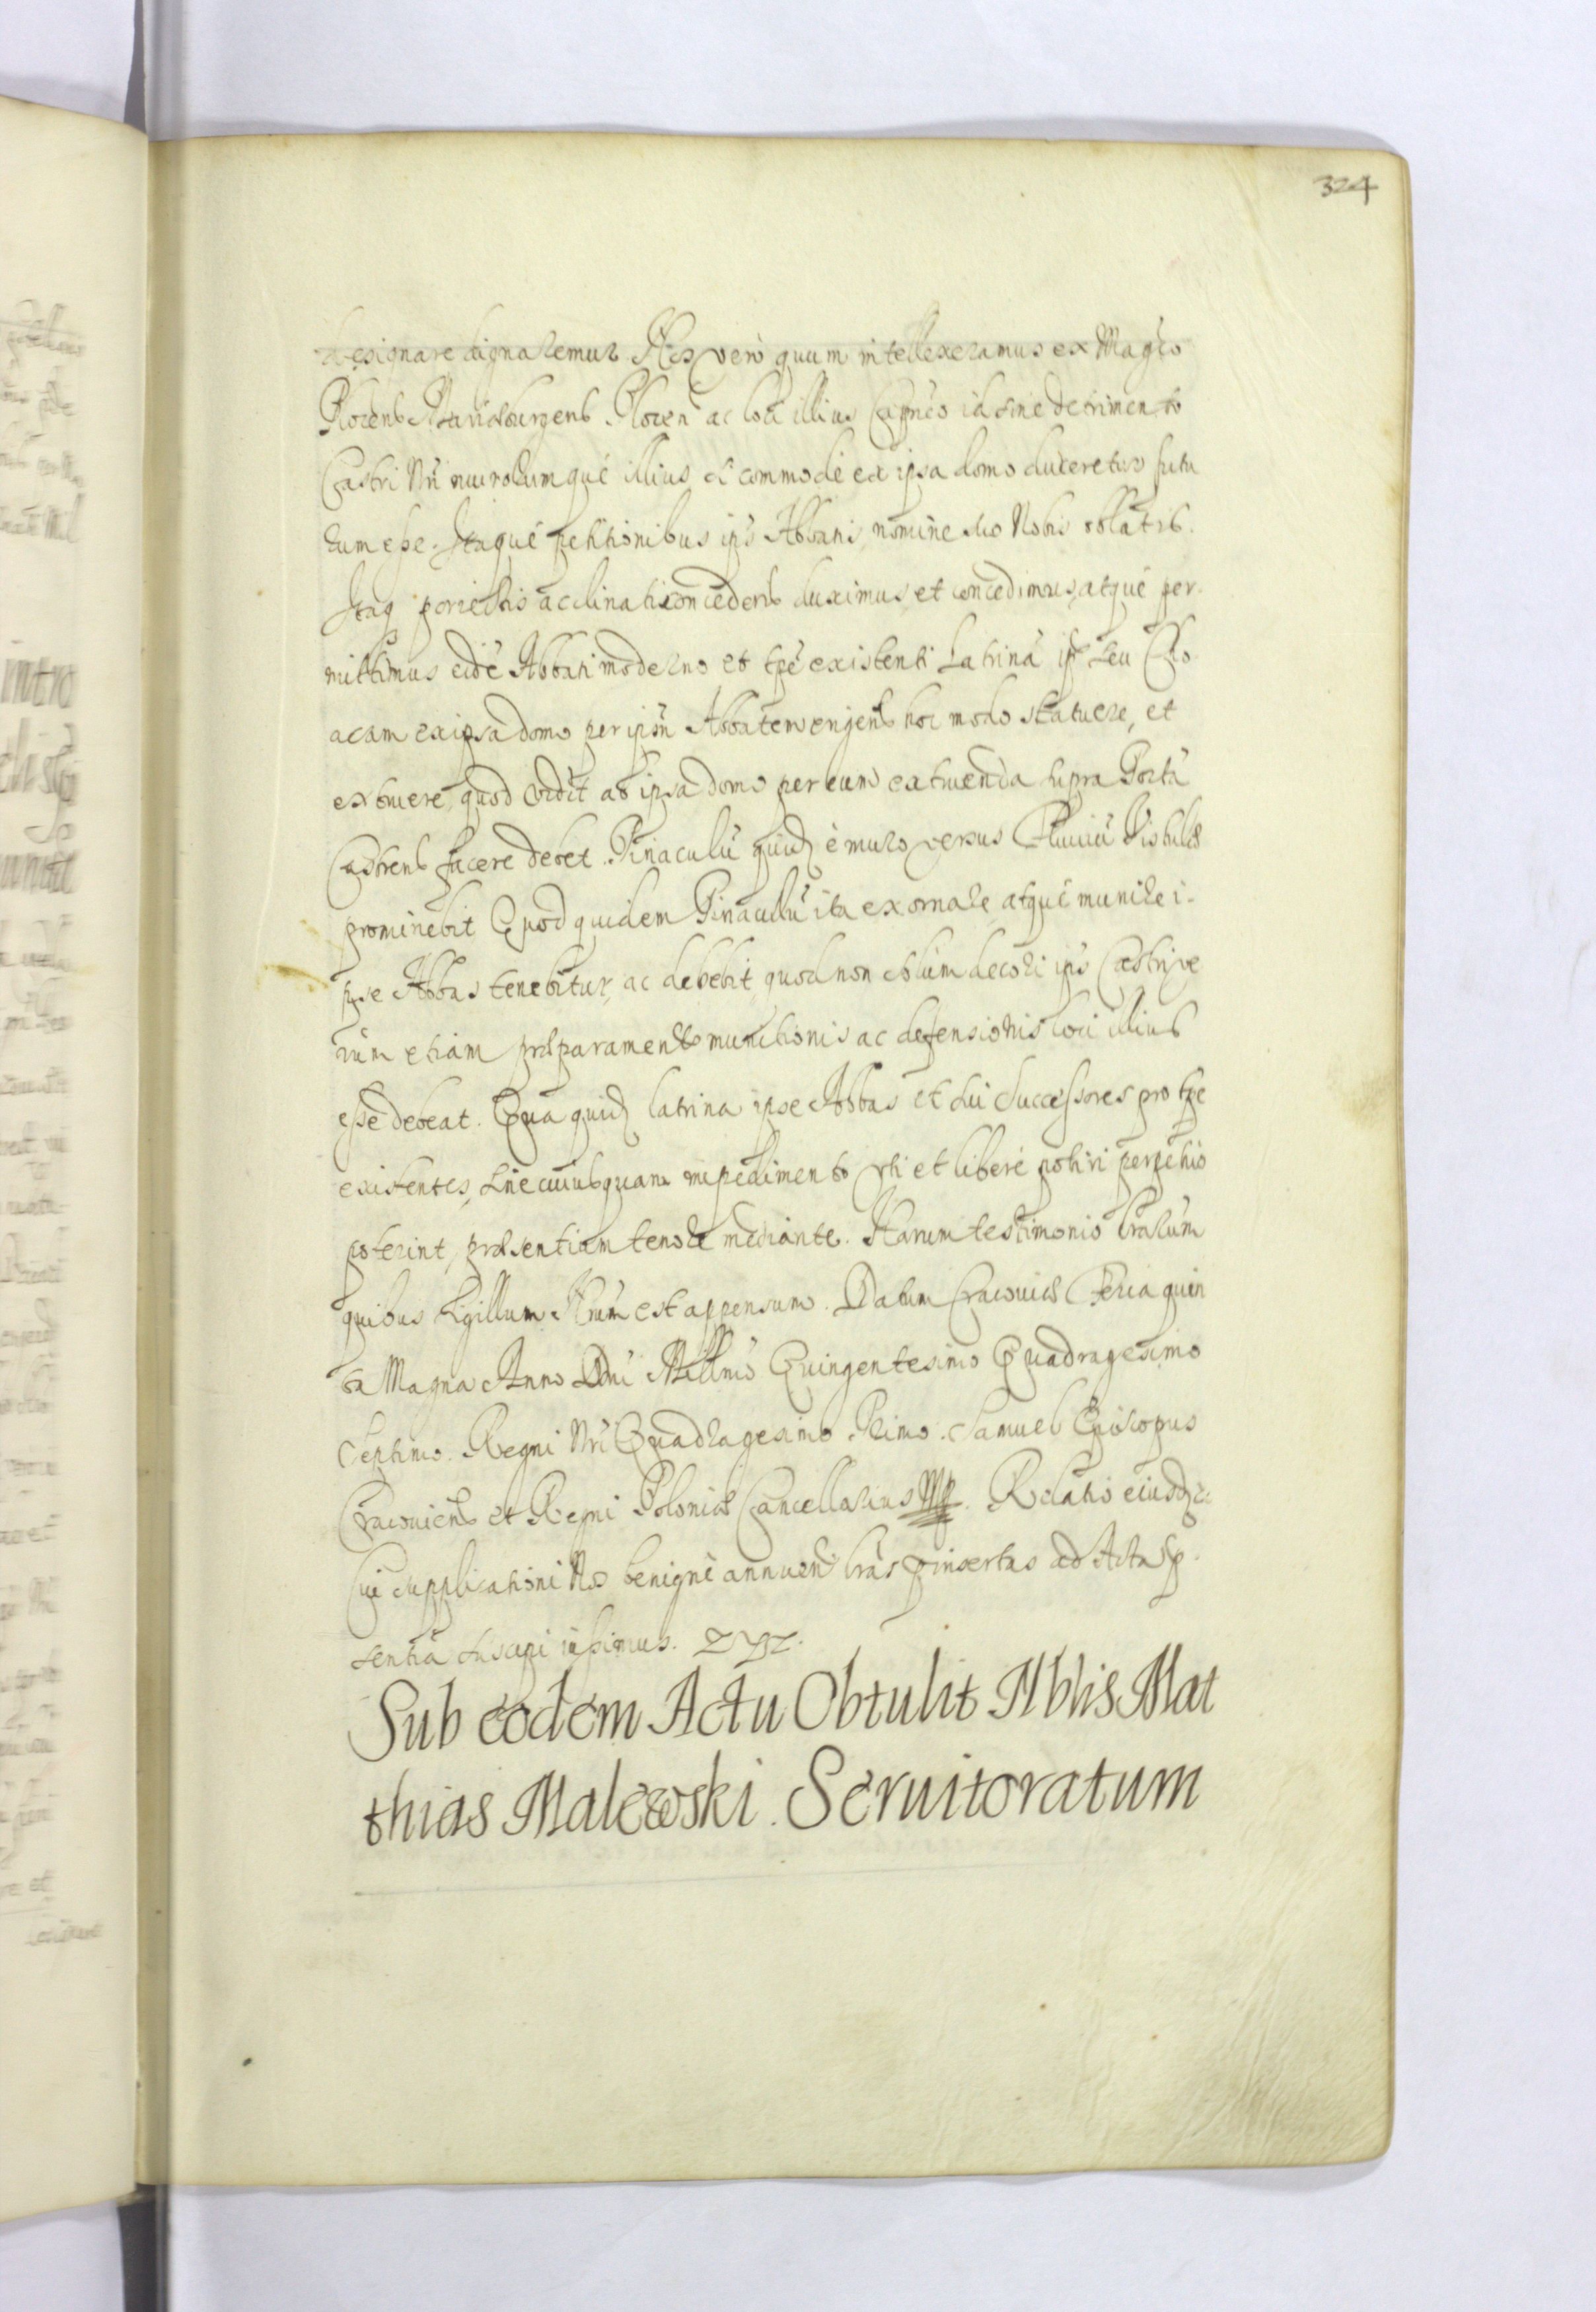 324
designare dignaremur. Nos vero quum intellexeramus ex Mag͠co
Plocens Mariaeburgens Plocen̄ ac loci illius Cap͠neo id sine detrimento
Castri Nr̄i murorumque illius si commode ex ipsa domo duceretur futu
rum esse. Itaque petitionibus ips͠ Abbatis nomine suo Nobis oblatis.
Itaq porrectis acclinati concedend duximus, et concedimus, atque per-
mittimus eidē Abbati moderno et tp̄e existenti Latrinā seu Clo-
acam ex ipsa domo per ips͠m Abbatem erigend hoc modo statuere, et
extruere, quod ab ipsa domo per eum extruenda supra Portā
Castrens facere debet. Pinaculū quidȝ è muro versus Fluviū Vistulae
prominebit Quod quidem Pinaculū ita exornare atque munire i-
pse Abbas tenebitur, ac debebit, quod non solum decori ips͠ Castri ve
rum etiam praeparamento munitionis ac defensionis loci illius
esse debeat. Qua quidȝ latrina ipse Abbas et sui Successores pro tp̄e
existentes, sine cuiusquam impedimento uti et libere potiri perpetuo
poterint, praesentium tenore mediante. Harum testimonio l͠rarum
quibus sigillum Nr͠um est appensum. Datum Cracoviae Feria quin
ta Magna Anno Dn͠i Mill͠mo Quingentesimo Quadragesimo
Septimo. Regni Nr͠i Quadragesimo Primo. Samuel Episcopus
Cracoviens et Regni Poloniae Cancellarius Mp. Relatio eiusdȝ
Cui supplicationi Nos benigne annuen͠ l͠ras insertas ad Acta p-
sentia suscipi iussimus.
Sub eodem Actu Obtulit Nblis Mat
thias Malewski. Seruitoratum